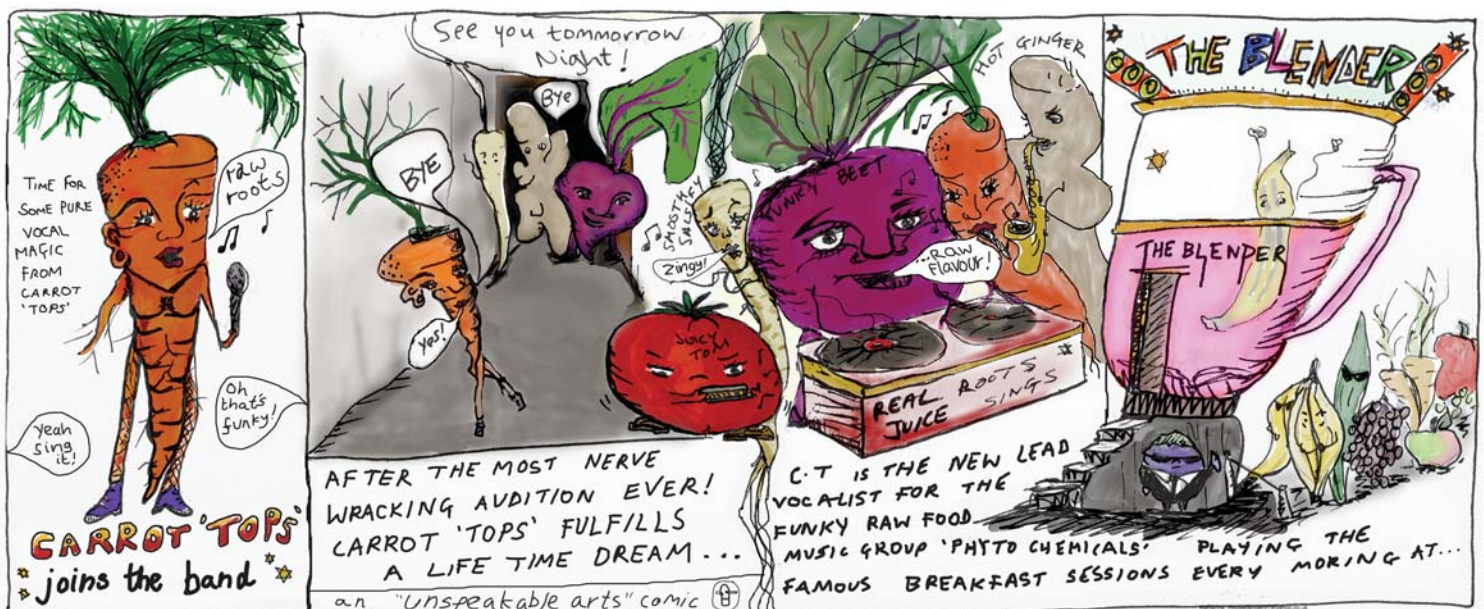 TIME FOR
SOME PURE
VOCAL
MAGIC
FROM
CARROT
'TOPS'
raw
roots
Yeah
sing
it!
Oh
that's
funky!
CARROT 'TOPS'
joins the band
See you tommorrow
Night!
Bye
BYE
Yes!
AFTER THE MOST NERVE
WRACKING AUDITION EVER!
CARROT 'TOPS' FULFILLS
A LIFE TIME DREAM...
an "unspeakable arts" comic
Zingy!
JUICY
TOM
FUNKY BEET
...RAW
Flavour!
HOT GINGER
REAL ROOTS
JUICE SINGS
C.T IS THE NEW LEAD
VOCALIST FOR THE
FUNKY RAW FOOD
MUSIC GROUP 'PHYTO CHEMICALS' PLAYING THE
FAMOUS BREAKFAST SESSIONS EVERY MORING AT...
THE BLENDER
THE BLENDER